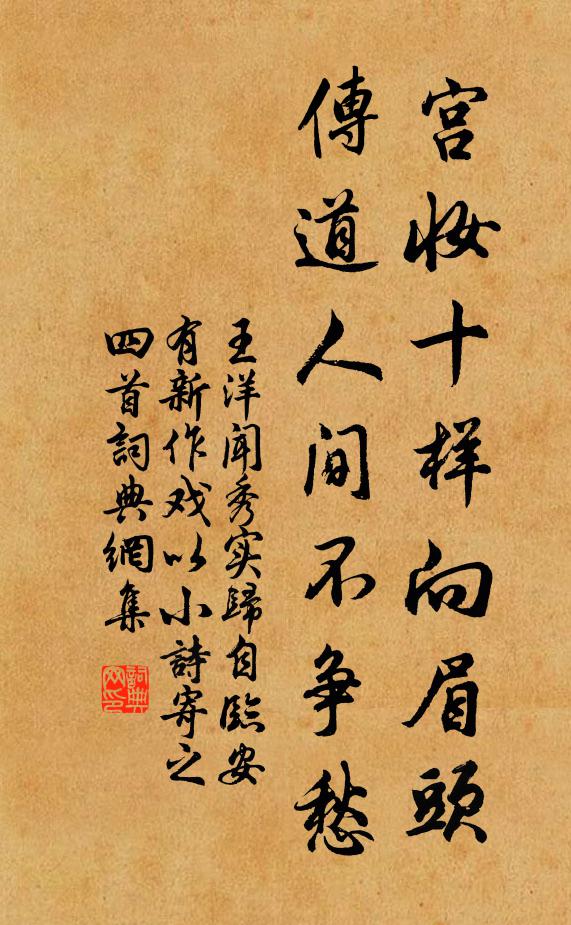 宫妝十样向眉頭
傳道人间不争愁
王洋闻秀实歸自臨安
有新作戏以小詩寄之
四首詞典網集
詞典
网印